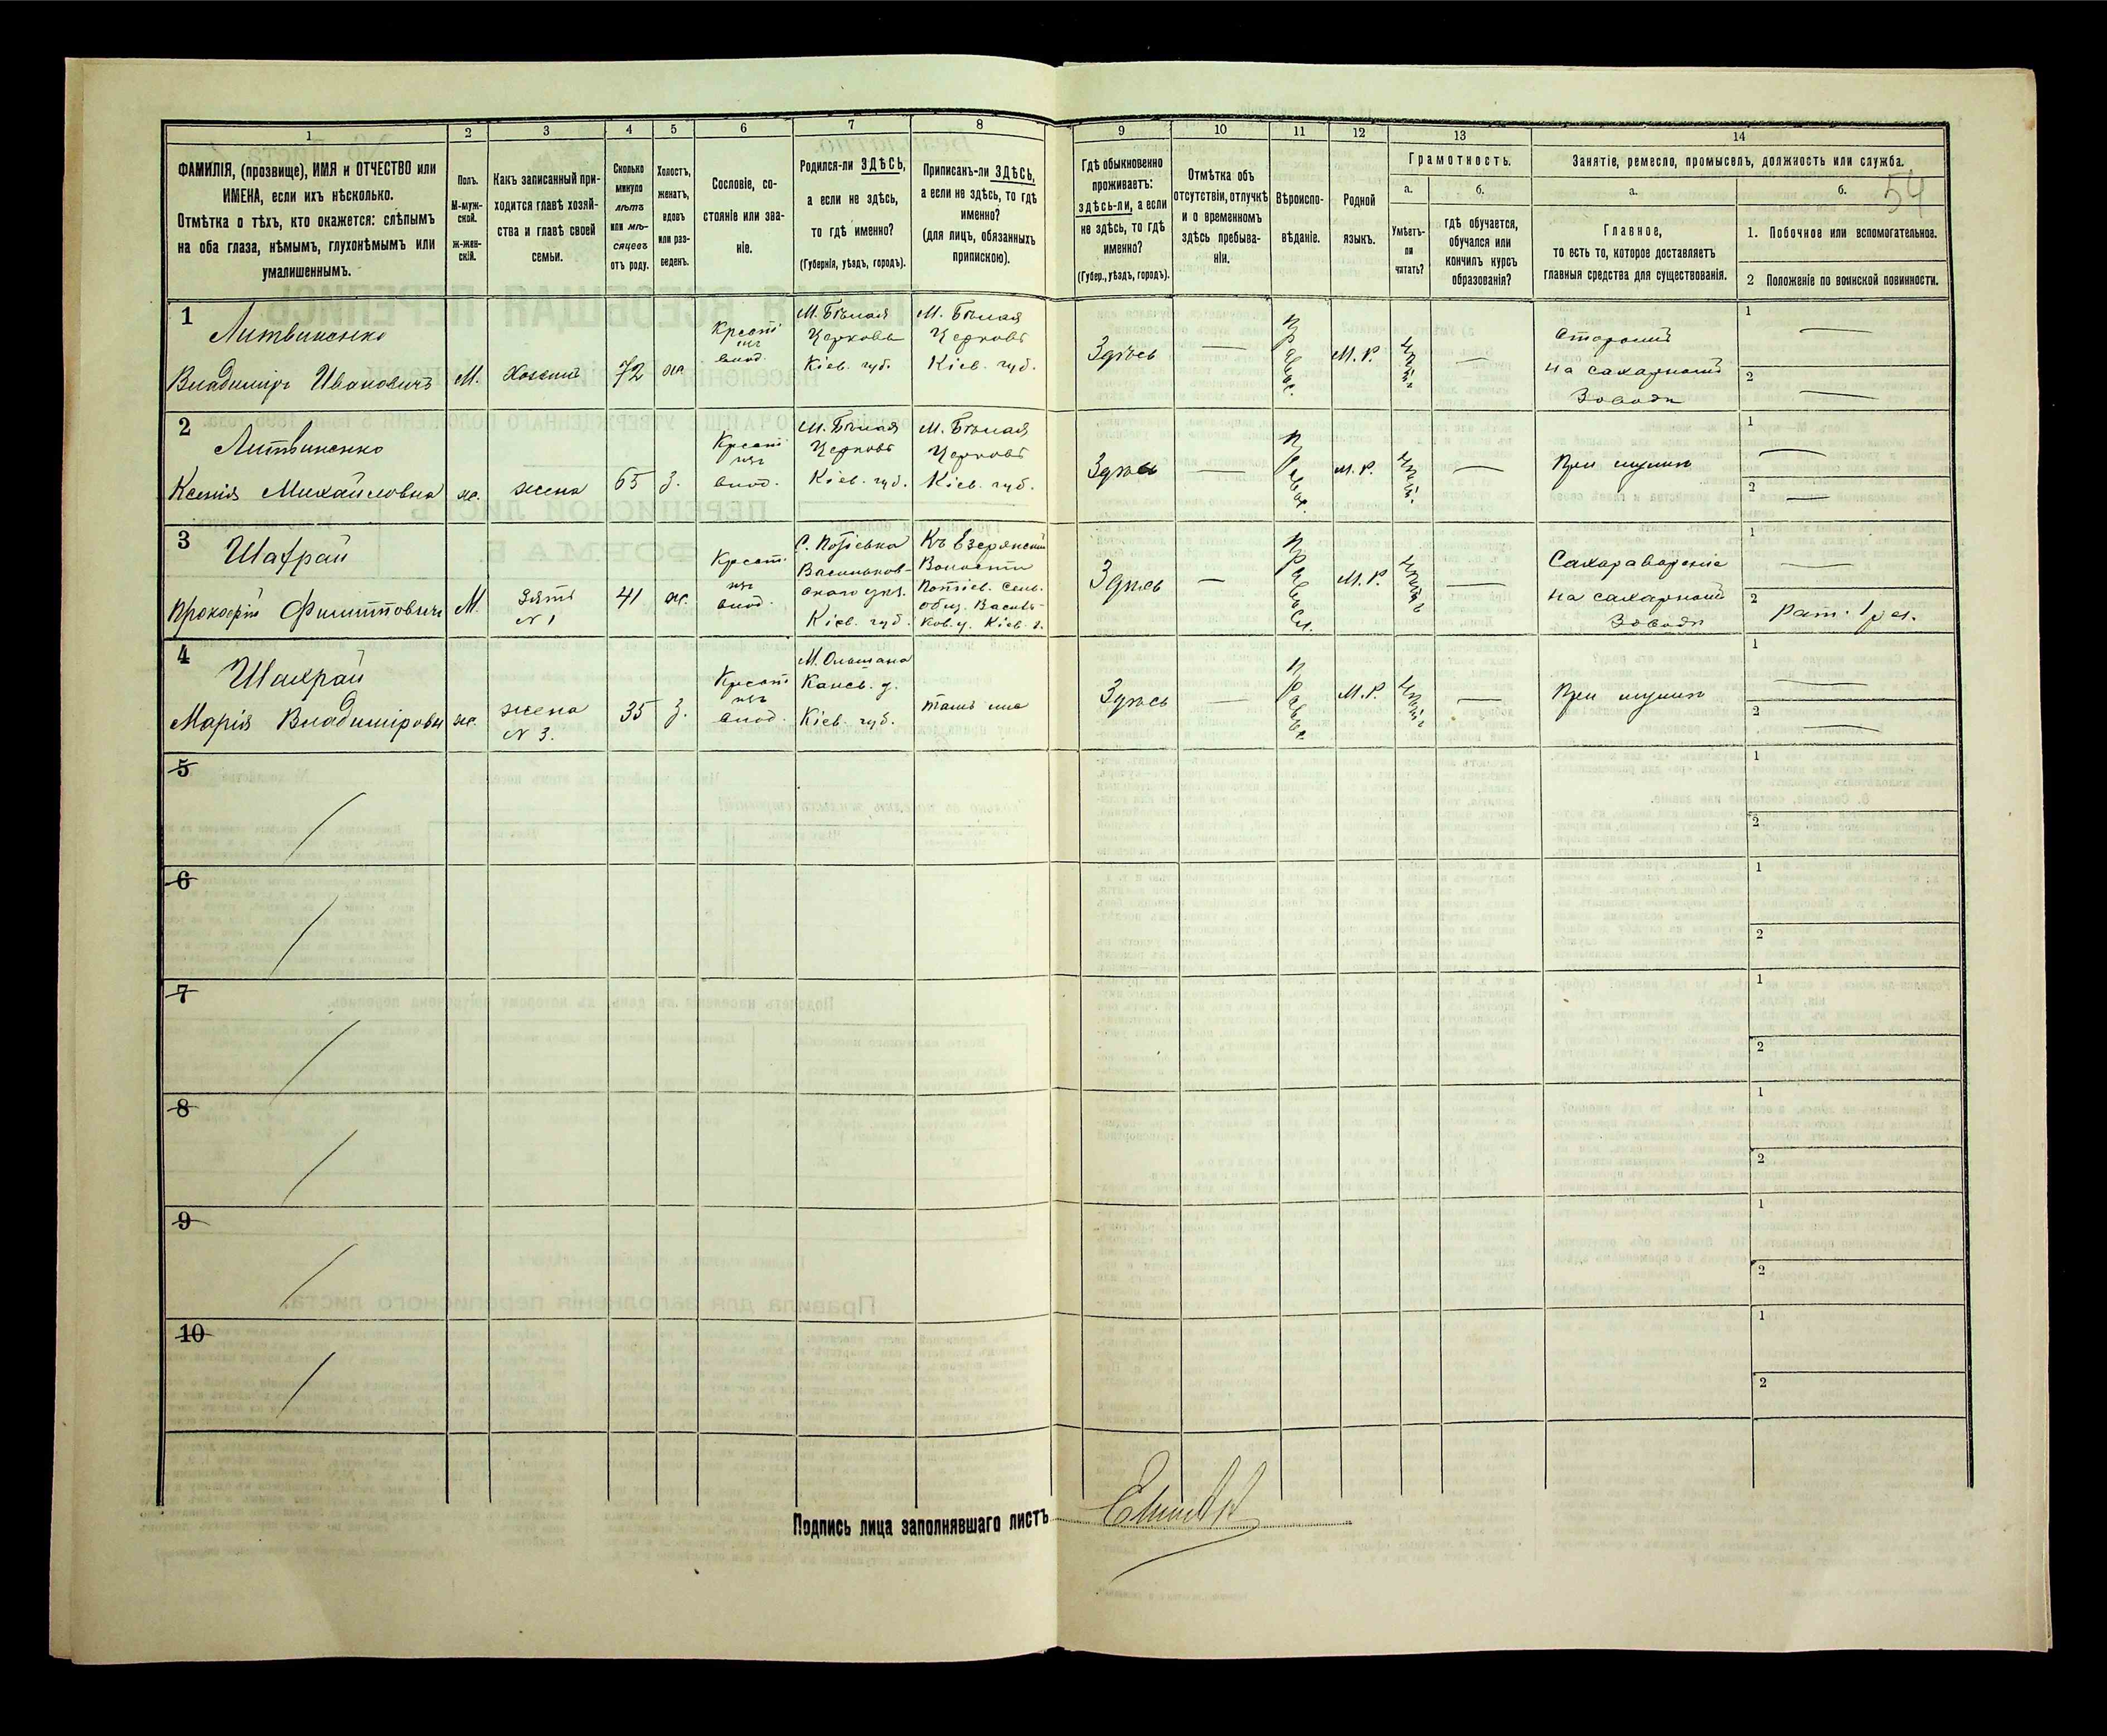 54
1
2
3
4
5
6
7
8
9
10
11
12
13
14
ФАМИЛІЯ, (прозвище), ИМЯ и ОТЧЕСТВО или
ИМЕНА, если ихъ нѣсколько.
Отмѣтка о тѣхъ, кто окажется: слѣпымъ
на оба глаза, нѣмымъ, глухонѣмымъ или
умалишеннымъ.
Полъ.
М-муж-
ской.
Ж-жен-
скій.
Какъ записанный при-
ходится главѣ хозяй-
ства и главѣ своей
семьи.
Сколько
минуло
лѣтъ
или мѣ-
сяцевъ
отъ роду.
Холостъ,
женатъ,
вдовъ
или раз-
веденъ.
Сословіе, со-
стояніе или зва-
ніе.
Родился-ли ЗДѢСЬ,
а если не здѣсь,
то гдѣ именно?
(Губернія, уѣздъ, городъ).
Приписанъ-ли ЗДѢСЬ,
а если не здѣсь, то гдѣ
именно?
(для лицъ, обязанныхъ
припискою).
Гдѣ обыкновенно
проживаетъ:
здѣсь-ли, а если
не здѣсь, то гдѣ
именно?
(Губер., уѣздъ, городъ).
Отмѣтка объ
отсутствіи, отлучкѣ
и о временномъ
здѣсь пребыва-
ніи.
Вѣроиспо-
вѣданіе.
Родной
языкъ.
Грамотность.
а.
Умѣетъ-
ли
читать?
б.
гдѣ обучается,
обучался или
кончилъ курсъ
образованія?
Занятіе, ремесло, промыселъ, должность или служба.
а.
Главное,
то есть то, которое доставляетъ
главныя средства для существованія.
б.
1. Побочное или вспомогательное.
2 Положеніе по воинской повинности.
1
Литвиненко
Владиміръ Ивановичъ
М.
Хозяинъ
72
ж
М. Бѣлая
Церковь
Кіев. губ.
М. Бѣлая
Церковь
Кіев. губ.
Здѣсь
—
Правос.
М. Р.
—
Сторожъ
на сахарномъ
Заводѣ
1 —
2 —
2
Литвиненко
Ксенія Михайловна
ж.
жена
65
з.
М. Бѣлая
Церковь
Кіев. губ.
М. Бѣлая
Церковь
Кіев. губ.
Здѣсь
—
М. Р.
—
При мужѣ
1 —
2 —
3
Шахрай
Прокофій Филипповичъ
М.
Зять
N 1
41
ж.
С. Потіевка
Васильков-
скаго уѣз.
Кіев. губ.
Волости
Потіев. Сель.
общ. Василь-
ков. у. Кіев. г.
Здѣсь
—
Правосл.
М. Р.
—
Сахаровареніе
на сахарномъ
Заводѣ
1 —
2 Рат. 1 р.
4
Шахрай
Марія Владиміровн
ж.
жена
N 3.
35
з.
М. Ольшана
Канев. у.
Кіев. губ.
тамъ же
Здѣсь
—
М. Р.
—
При мужѣ
1 —
2 —
5
1
2
6
1
2
7
1
2
8
1
2
9
1
2
10
1
2
Подпись лица заполнявшаго листъ